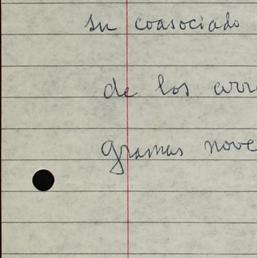 su coasociado
de los arr
gramas nove